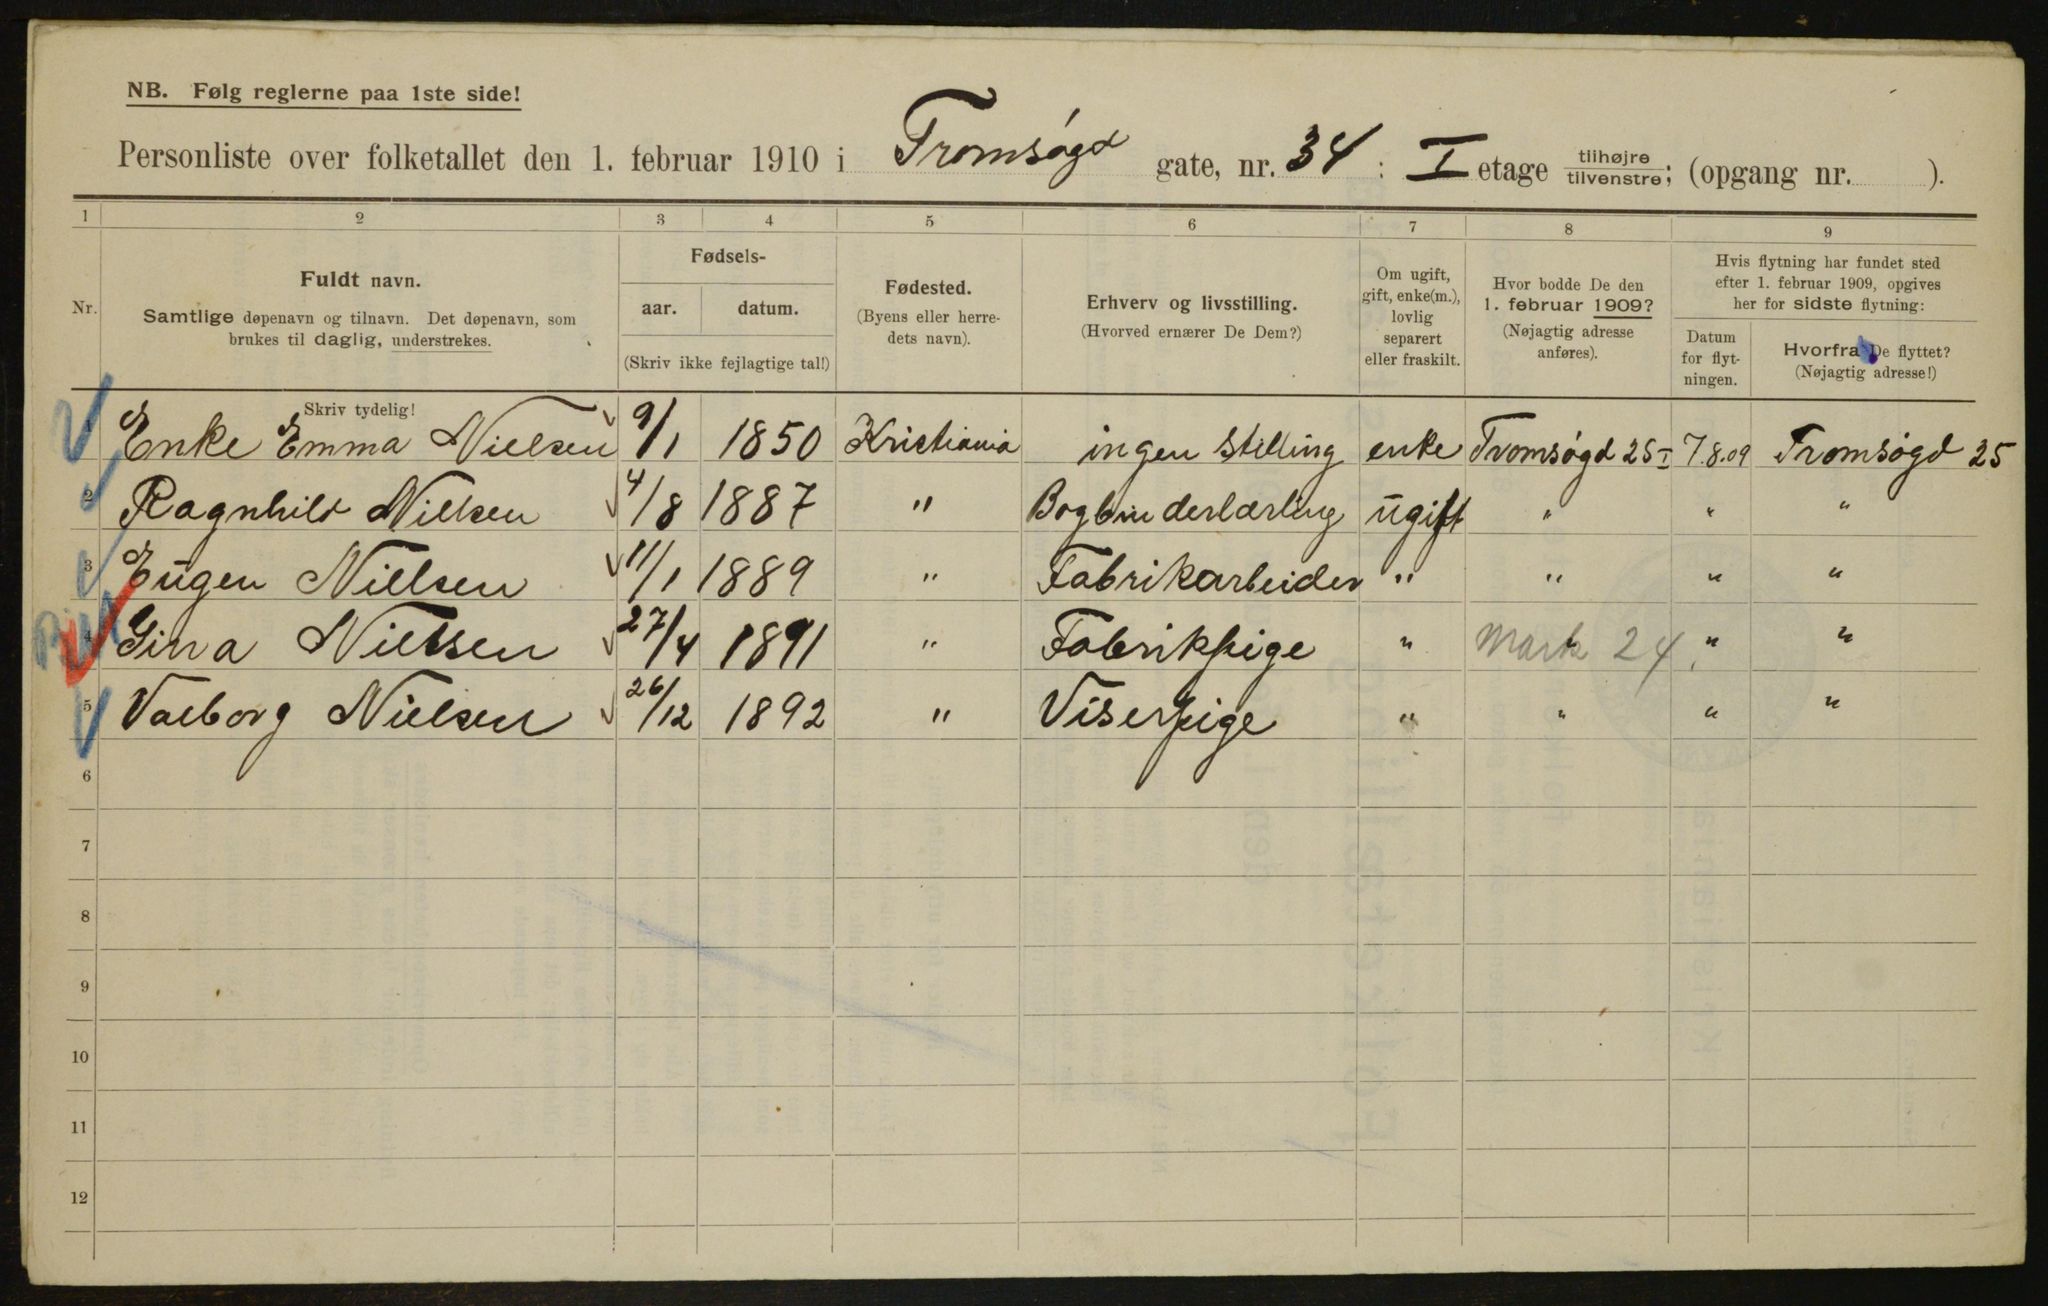 NB. Følg reglerne paa 1ste side!
Personliste over folketallet den 1. februar 1910 i Tromsøgd gate, nr. 34 : I etage tilhøjre/tilvenstre; (opgang nr. ).
1 2 3 4 5 6 7 8 9
Nr.
Fuldt navn.
Samtlige døpenavn og tilnavn. Det døpenavn, som
brukes til daglig, understrekes.
Skriv tydelig!
Fødsels-
aar. datum.
(Skriv ikke fejlagtige tal!)
Fødested.
(Byens eller herre-
dets navn).
Erhverv og livsstilling.
(Hvorved ernærer De Dem?)
Om ugift,
gift, enke(m.),
lovlig
separert
eller fraskilt.
Hvor bodde De den
1. februar 1909?
(Nøjagtig adresse
anføres).
Hvis flytning har fundet sted
efter 1. februar 1909, opgives
her for sidste flytning:
Datum
for flyt-
ningen.
Hvorfra De flyttet?
(Nøjagtig adresse!)
1 Enke Emma Nielsen 9/1 1850 Kristiania ingen stilling enke Tromsøgd 25 I 7.8.09 Tromsøgd 25
2 Ragnhild Nielsen 4/8 1887 " Bogbinderlærling ugift " " "
3 Eugen Nielsen 11/1 1889 " Fabrikarbeider " " " "
4 Gina Nielsen 27/4 1891 " Fabrikpige " Mark 24 " "
5 Valborg Nielsen 26/12 1892 " Viserpige " " " "
6
7
8
9
10
11
12